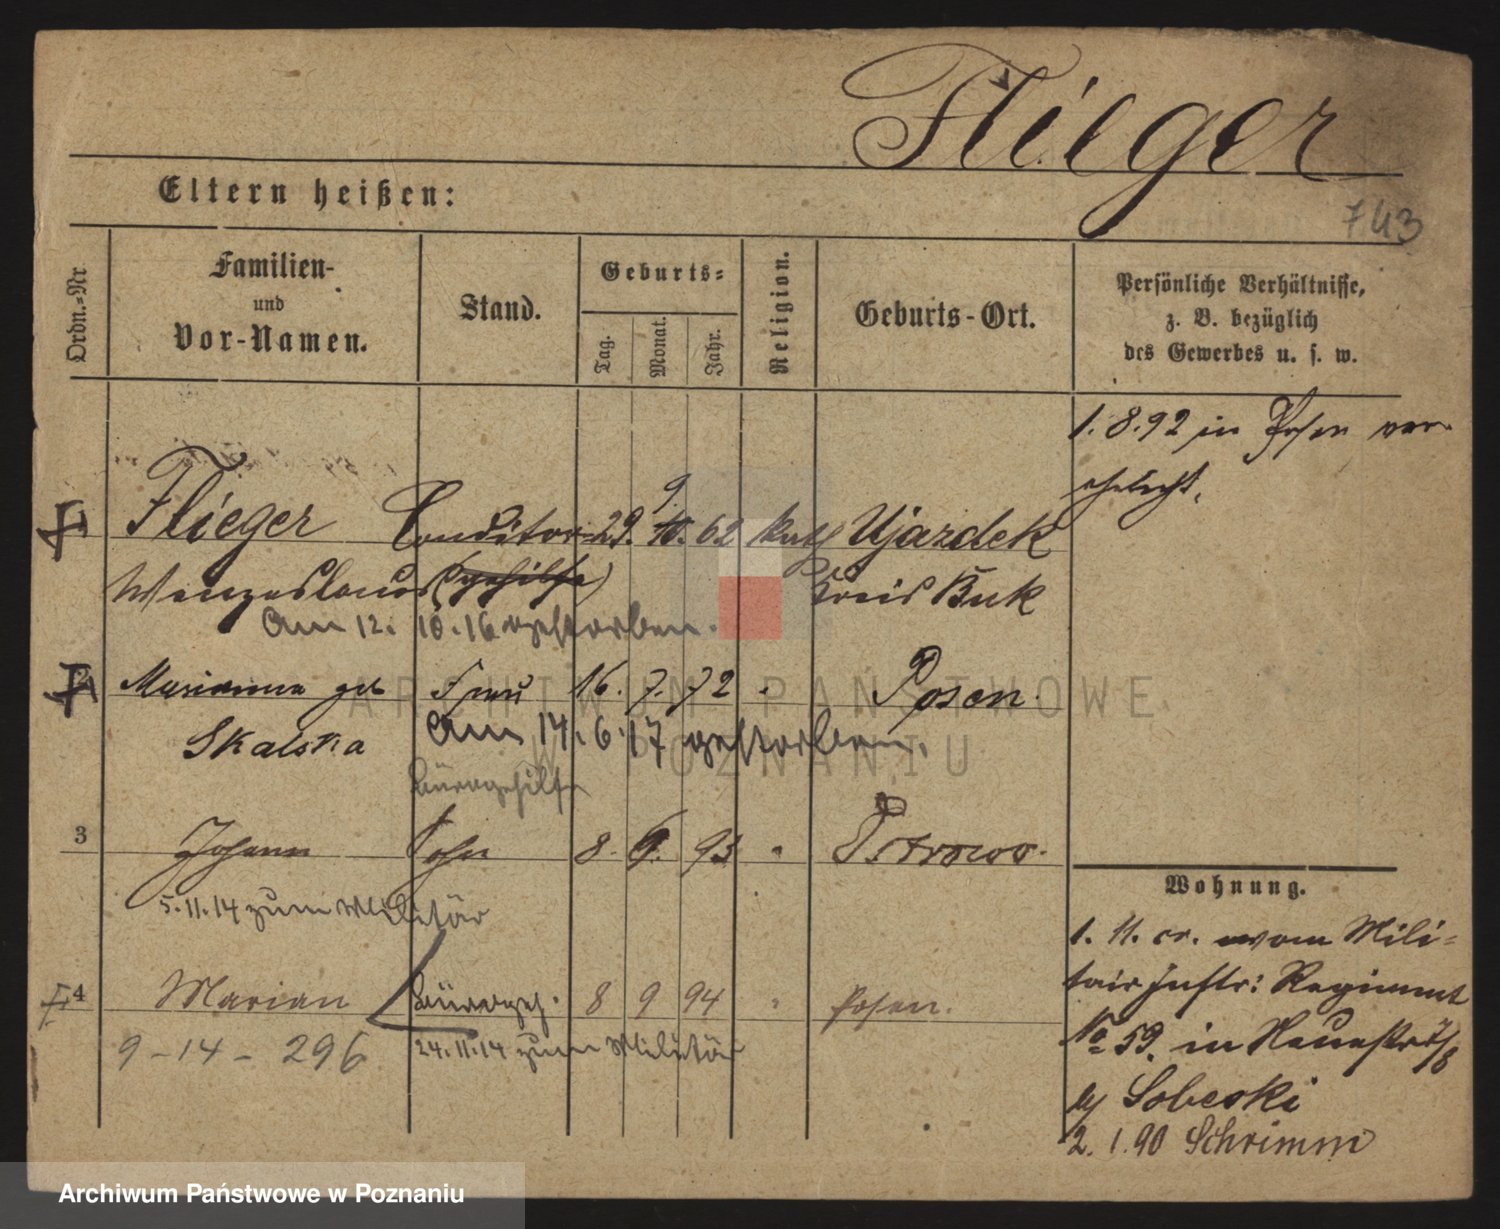 Flieger
743
Eltern heißen:
Ordn.-Nr.
Familien-
und
Vor-Namen.
Stand.
Geburts-
Tag.
Monat.
Jahr.
Religion.
Geburts-Ort.
Persönliche Verhältnisse,
z. B. bezüglich
des Gewerbes u. s. w.
1. 8. 92 in Posen ver-
ehelicht.
9.
Flieger Conditor- 29. 10. 62 kath Ujazdek
Wenzeslaus (gehilfe) Kreis Buk
Am 12. 10. 16 gestorben.
Marianna geb Frau 16. 7. 72 " Posen.
Skalska
Am 14. 6. 17 gestorben.
Bürogehilfe
3 Johann Sohn 8. 6. 93 " Ostrowo.
5. 11. 14 zum Militär
4 Marian Bürogeh. 8 9 94 " Posen.
9-14-296
24. 11. 14 zum Militär
Wohnung.
1. 11. cr. vom Mili-
tair Inftr: Regiment
No 59. in Neuestr 7/8
by Sobeski
2. 1. 90 Schrimm
ARCHIWUM PAŃSTWOWE
W POZNANIU
Archiwum Państwowe w Poznaniu